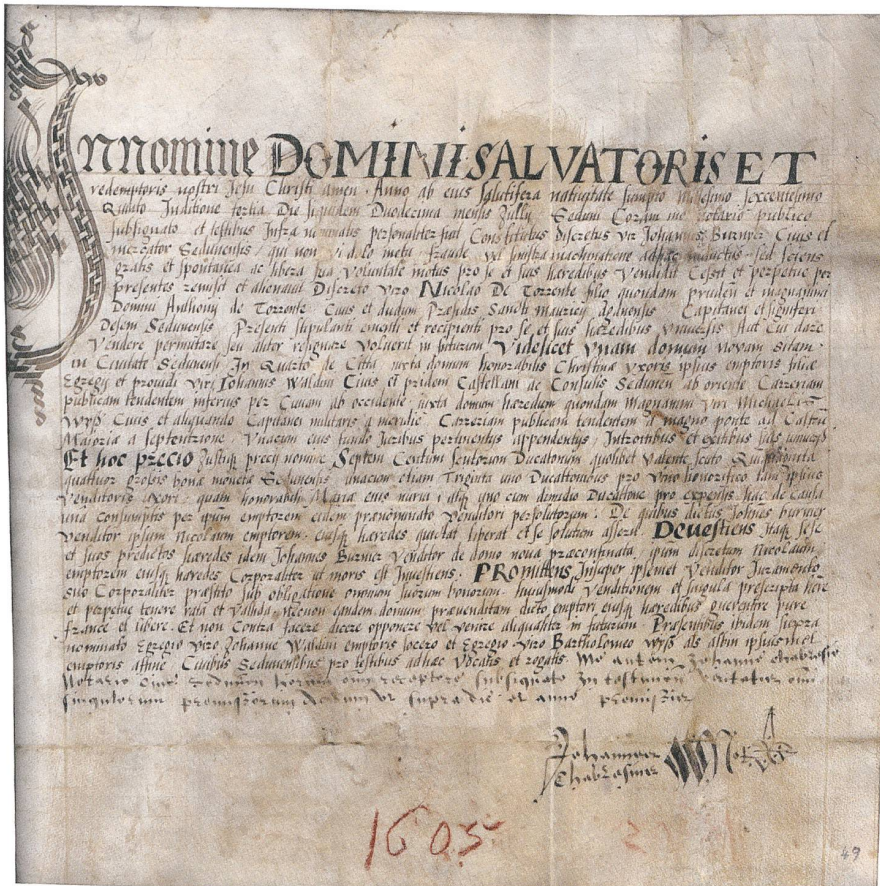 In nomine DOMINI SALVATORIS ET
redemptoris nostri Jesu Christi amen. Anno ab eius salutifera nativitate sumpto millesimo sexcentesimo
Quinto Inditione tertia Die siquidem Duodecima mensis Jully Seduni Coram me notario publico
subsignato et testibus Infra nominatis personaliter fuit Constitutus discretus vir Johannes Burnier Civis et
mercator Sedunensis, qui non vi dolo metu fraude vel sinistra machinatione adhac inductus, sed sciens
gratis et spontanea ac libera sua voluntate motus pro se et suis hæredibus Vendidit Cessit et perpetue per
presentes remisit et alienavit Discreto viro Nicolao De Torrente filio quondam prudentis et magnanimi
Domini Anthony de Torrente Civis et dudum Præsidis Sancti Maurity Capitanei et signiferi
Deseni Sedunensis, Presenti stipulanti ementi et recipienti pro se et suis hæredibus universis Aut Cui dare
Vendere permutare seu aliter resignare voluerit in futurum, Videlicet vnam domum novam sitam
in Civitate Sedunensi In Quarto de Citta juxta domum honorabilis Christinæ vxoris ipsius emptoris filiæ
Egregy et providi viri Johannis Waldin Civis et pridem Castellani ac Consulis Sedunen ab oriente Carreriam
publicam tendentem inferius per Civam ab occidente, iuxta domum hæredum quondam Magnanimi Viri Michaelis
Wyß Civis et aliquando Capitanei militaris a meridie Carreriam publicam tendentem a magno ponte ad Castru
Maioria a septentrione, Vnacum eius fundo Juribus pertinentys appendentys, Introitibus et exitibus suis universis
Et hoc precio Justiq precy nomine Septem Centum scutorum Ducatonum quolibet valente scuto Quinquaginta
quatuor grossis bonæ monetæ Sedunensis unacum etiam Triginta uno Ducattonibus pro Vino honorifico tam ipsius
Venditoris vxori, quam honorabili Maria eius nuru, atq uno cum dimidio Ducatone pro expensis hac de causa
una consumptis per ipsum emptorem eidem prænominato Venditori persolutorum. De quibus dictus Johnes burnier
Venditor ipsum Nicolaum emptorem eiusq hæredes quictat liberat et se solutum asserit Devestiens Itaq sese
et suos predictos hæredes idem Johannes Burnier Venditor de domo nova præconfinata, ipsum discretum Nicolaum
emptorem eiusq hæredes Corporaliter ut moris est Investiens. PROmittens Insuper ipsemet Venditor Juramento
suo Corporaliter præstito sub obligatione omnium suorum bonorum, huiusmodi Venditionem et singula prescripta
et perpetue tenere rata et valida, Necnon eandem domum prævenditam dicto emptori eiusq hæredibus guerentire pure
france et libere. Et non Contra facere dicere opponere vel venire aliqualiter in futurum. Præsentibus ibidem supra
nominato Egregio viro Johanne Waldin emptoris socero et Egregio viro Bartholomeo Wyß als albin ipsiusmet
emptoris affine Civibus Sedunensibus pro testibus adhæc Vocatis et rogatis. Me autem Johanne Chabrasie
Notario Cive Sedunen horum receptore subsignato In testimonium veritatis omnium
singulorum premissorum Actum ut supra die et anno premissis
Johannes
Chabrasius Not
1605
49